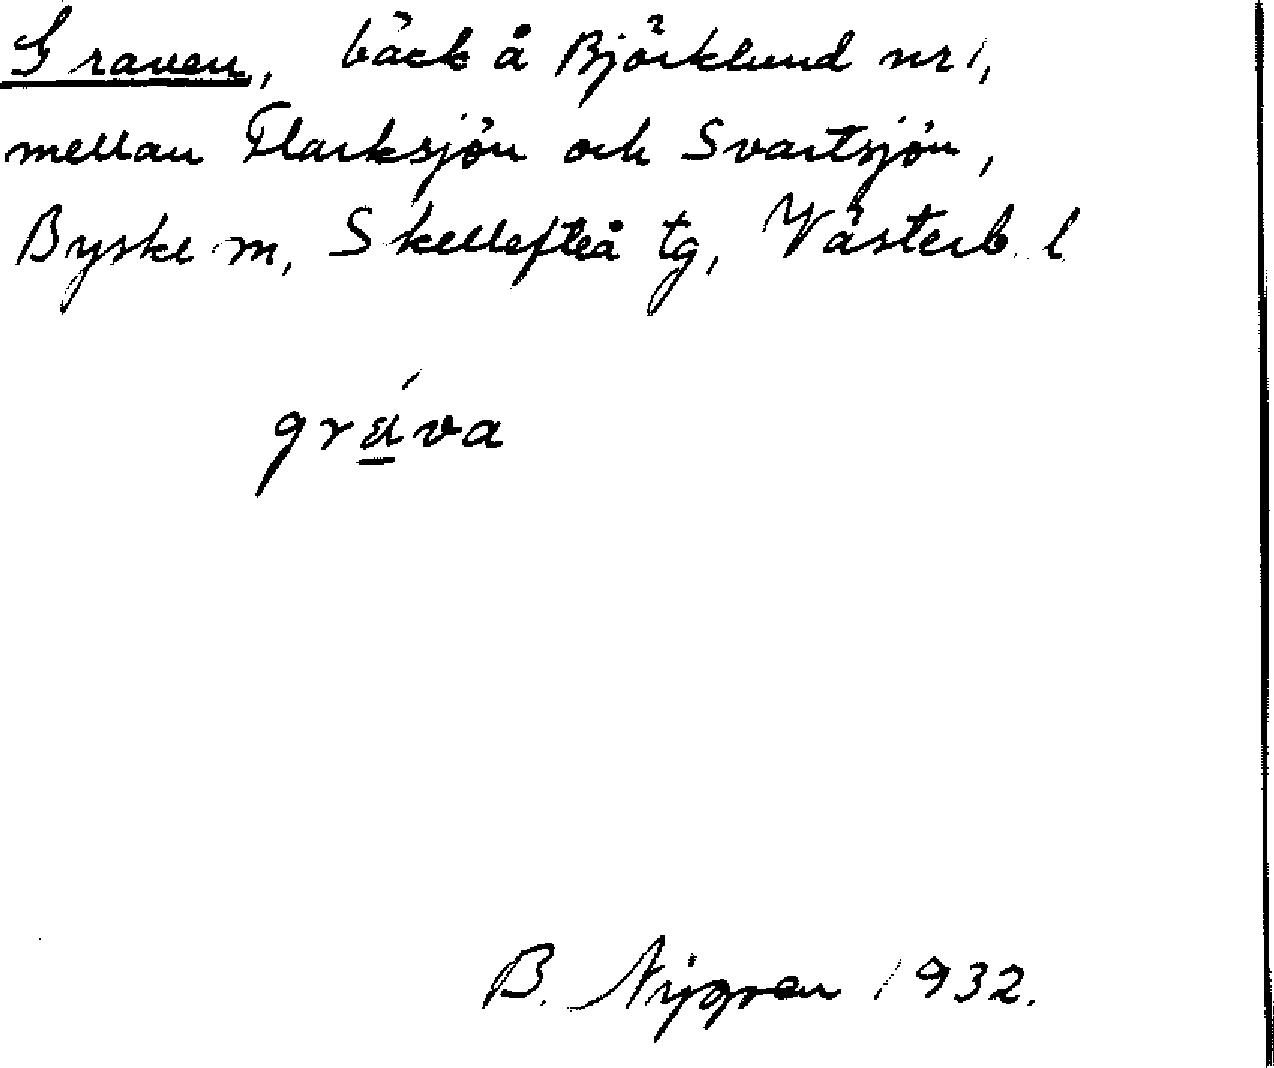 Graven, bäck å Björklund nr 1,
mellan Flarksjön och Svartsjön,
Byske m, Skellefteå tg, Västerb. l
gráva
B. Nygren 1932.